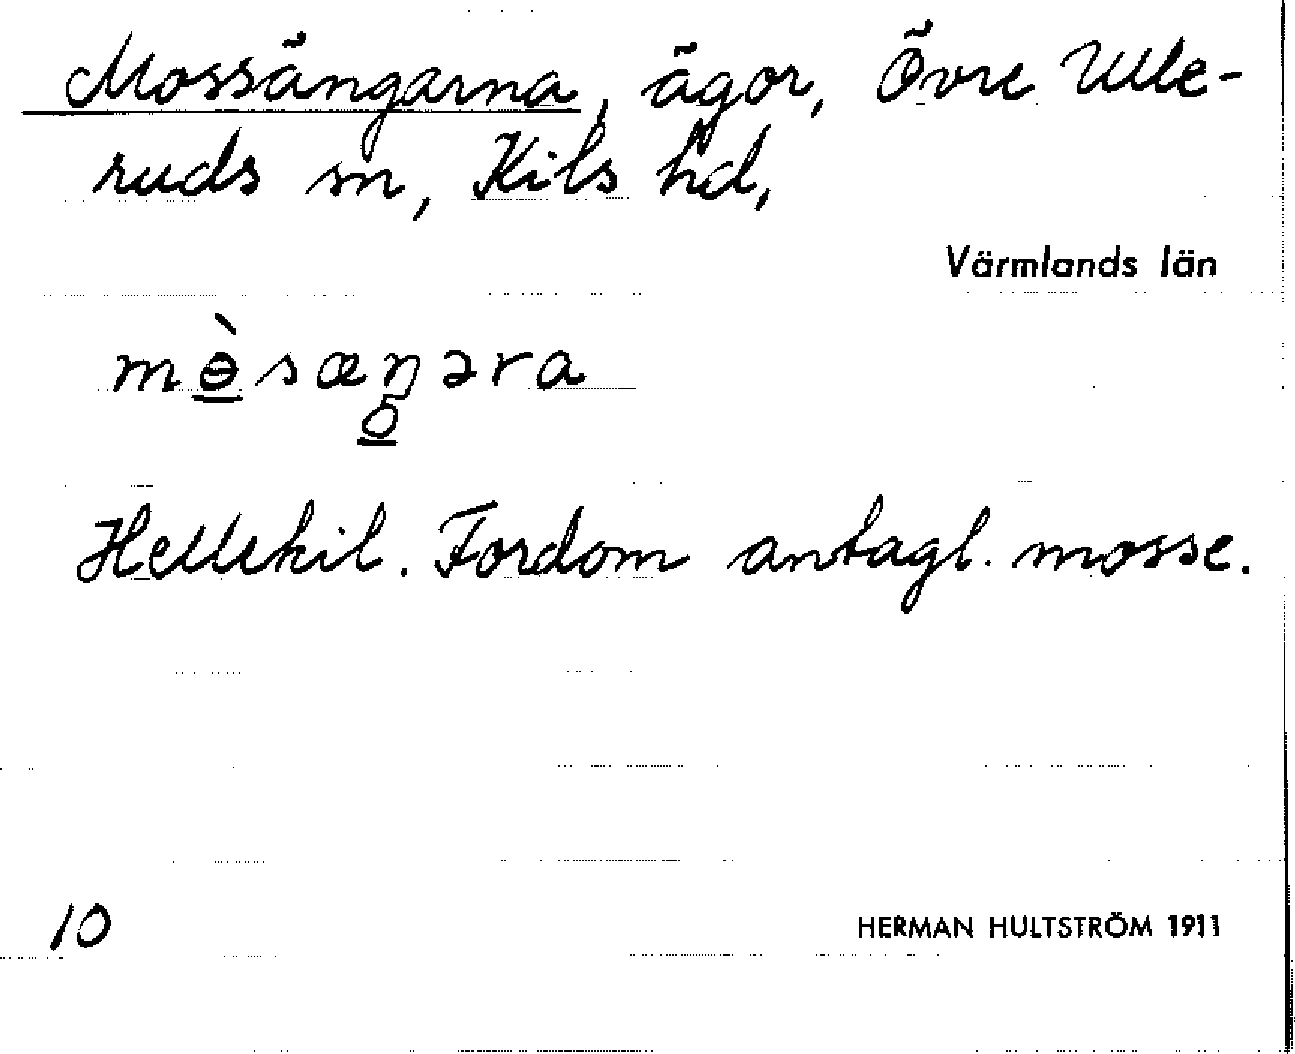 Mossängarna, ägor, Övre Ulle-
ruds sn, Kils hd,
Värmlands län
mɵ̀sæŋəra
Hellekil. Fordom antagl. mosse.
10
HERMAN HULTSTRÖM 1911